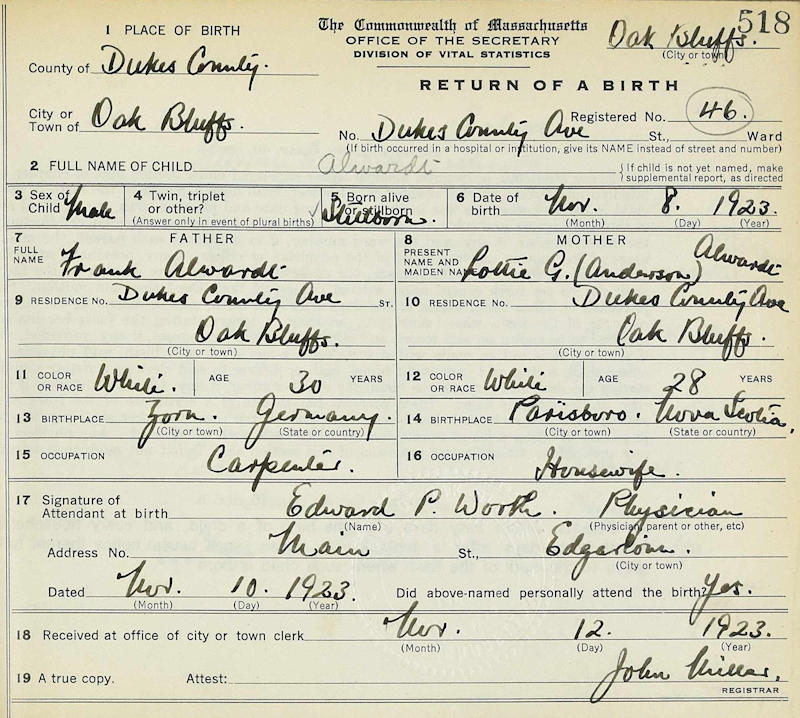 518
1 PLACE OF BIRTH
The Commonwealth of Massachusetts
OFFICE OF THE SECRETARY
DIVISION OF VITAL STATISTICS
Oak Bluffs.
(City or town)
County of Dukes County.
RETURN OF A BIRTH
City or Town of Oak Bluffs.
Registered No. 46.
No. Dukes County Ave St., Ward
(If birth occurred in a hospital or institution, give its NAME instead of street and number)
2 FULL NAME OF CHILD Alwardt
{ If child is not yet named, make supplemental report, as directed
3 Sex of Child Male
4 Twin, triplet or other?
(Answer only in event of plural births)
5 Born alive or stillborn Stillborn.
6 Date of birth Nov. 8. 1923.
(Month) (Day) (Year)
7 FATHER
FULL NAME Frank Alwardt
8 MOTHER
PRESENT NAME AND MAIDEN NAME Lottie G. (Anderson) Alwardt
9 RESIDENCE No. Dukes County Ave ST.
Oak Bluffs.
(City or town)
10 RESIDENCE No. Dukes County Ave
Oak Bluffs.
(City or town)
11 COLOR OR RACE White. AGE 30 YEARS
12 COLOR OR RACE White AGE 28 YEARS
13 BIRTHPLACE Zorn. Germany.
(City or town) (State or country)
14 BIRTHPLACE Parisboro. Nova Scotia.
(City or town) (State or country)
15 OCCUPATION Carpenter.
16 OCCUPATION Housewife.
17 Signature of Attendant at birth Edward P. Worth. Physician
(Name) (Physician, parent or other, etc)
Address No. Main St., Edgartown.
(City or town)
Dated Nov. 10. 1923. Did above-named personally attend the birth? Yes.
(Month) (Day) (Year)
18 Received at office of city or town clerk Nov. 12. 1923.
(Month) (Day) (Year)
19 A true copy. Attest: John Millar.
REGISTRAR